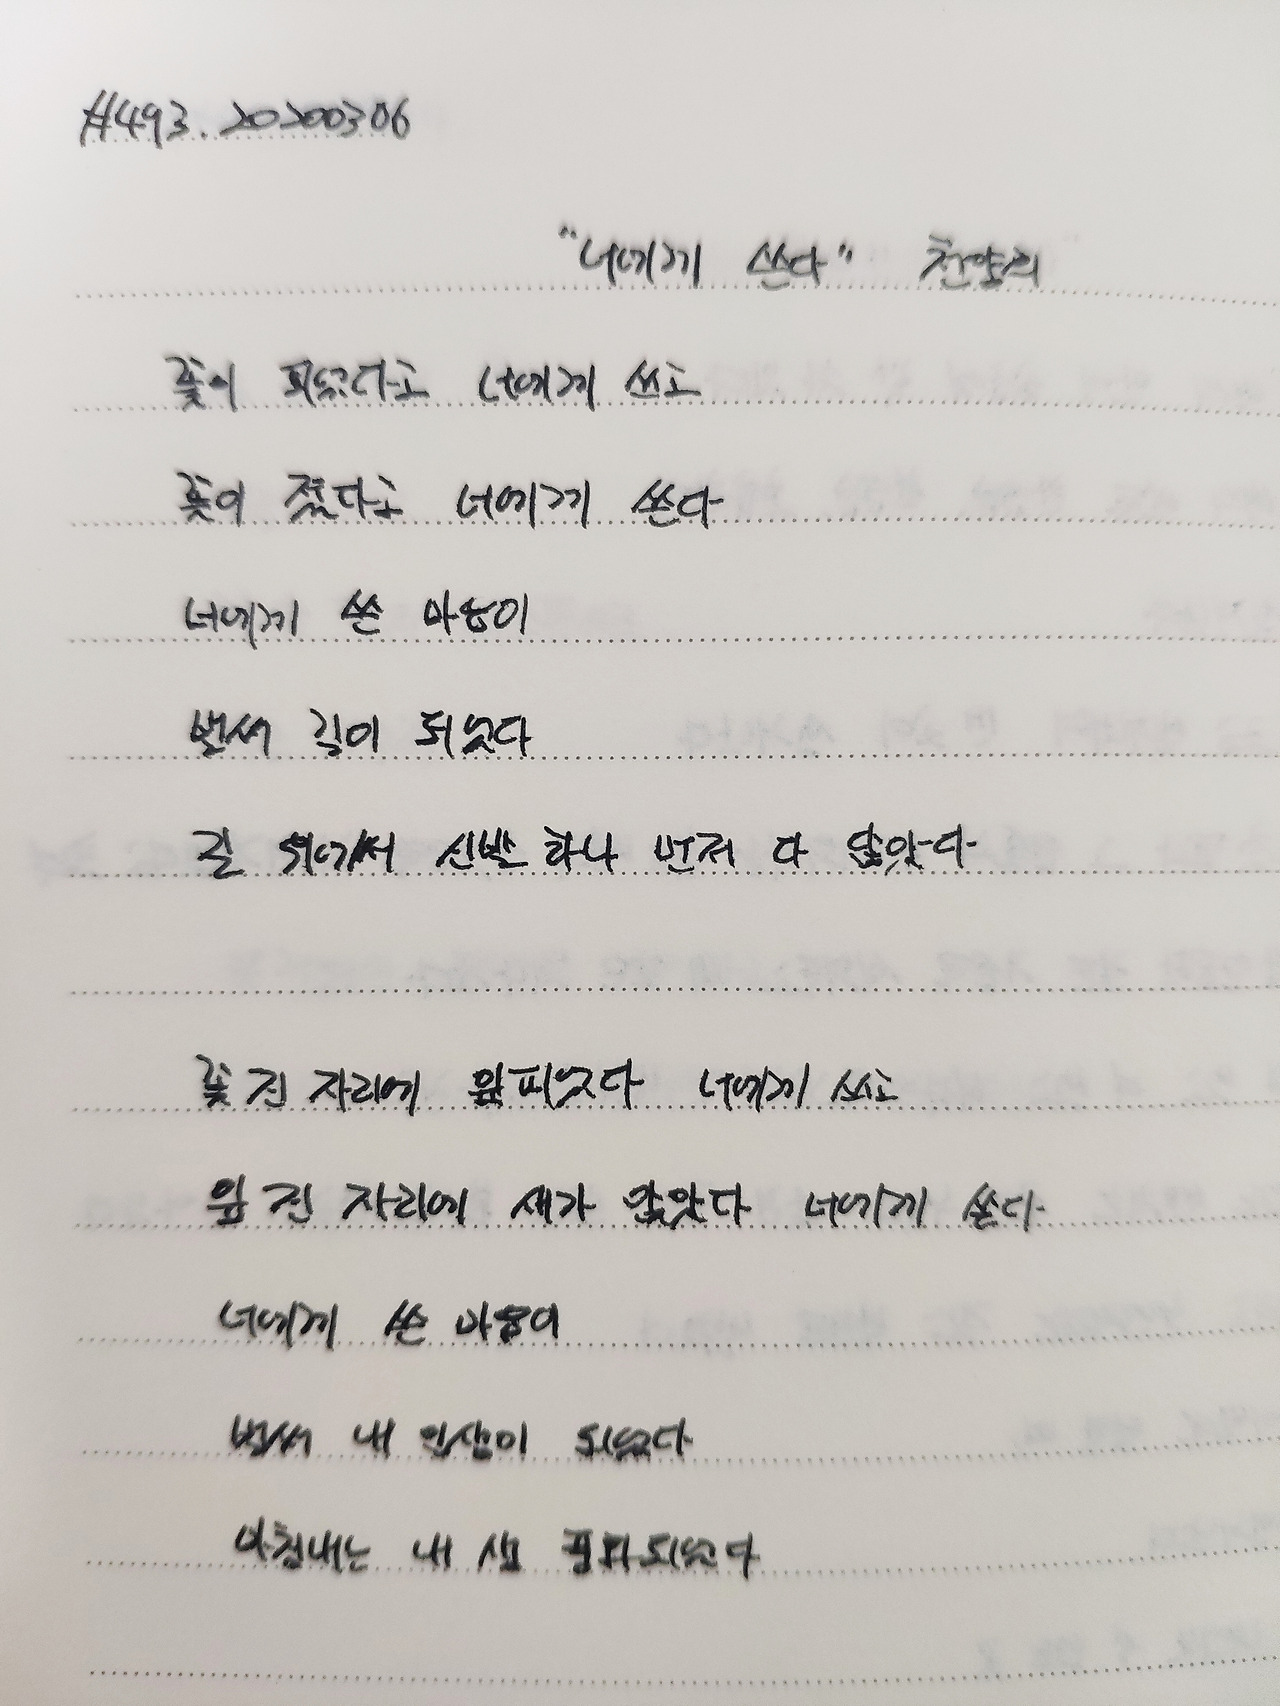 #493. 20200306
"너에게 쓴다" 천양희
꽃이 피었다고 너에게 쓰고
꽃이 졌다고 너에게 쓴다
너에게 쓴 마음이
벌써 길이 되었다
길 위에서 신발 하나 먼저 다 닳았다
꽃 진 자리에 잎피었다 너에게 쓰고
잎 진 자리에 새가 앉았다 너에게 쓴다
너에게 쓴 마음이
벌써 내 인생이 되었다
마침내는 내 생 풍화되었다